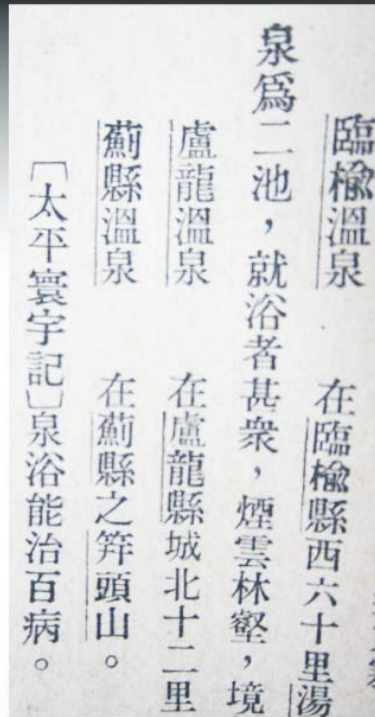 臨榆溫泉 在臨榆縣西六十里湯
泉爲二池，就浴者甚衆，煙雲林壑，境
盧龍溫泉 在盧龍縣城北十二里
薊縣溫泉 在薊縣之笄頭山。
［太平寰宇記］泉浴能治百病。